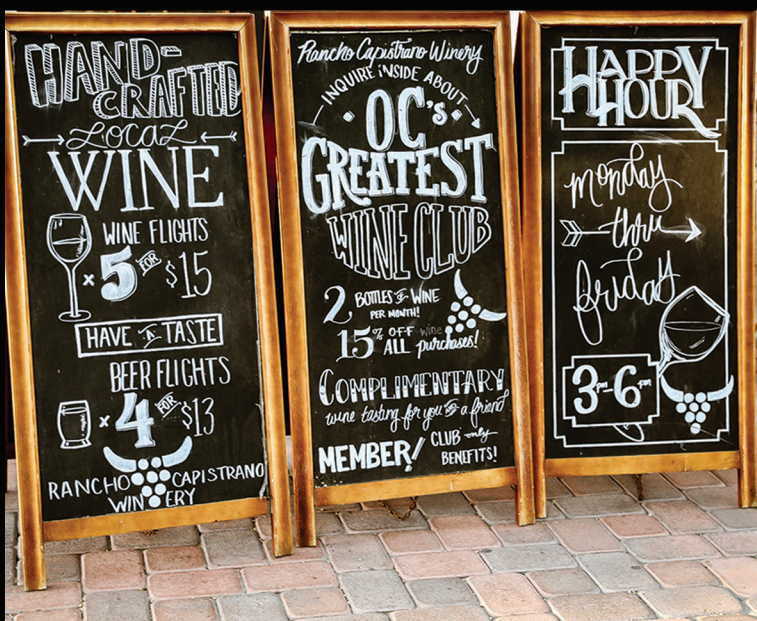 HAND-
CRAFTED
LOCAL
WINE
WINE FLIGHTS
x 5 FOR $15
HAVE A TASTE
BEER FLIGHTS
x 4 FOR $13
RANCHO CAPISTRANO
WINERY
Rancho Capistrano Winery
INQUIRE INSIDE ABOUT
OC's
GREATEST
WINE CLUB
2 BOTTLES OF WINE
PER MONTH!
15% OFF wine
ALL purchases!
COMPLIMENTARY
wine tasting for you & a friend
MEMBER! CLUB only
BENEFITS!
HAPPY
HOUR
monday
thru
friday
3pm-6pm